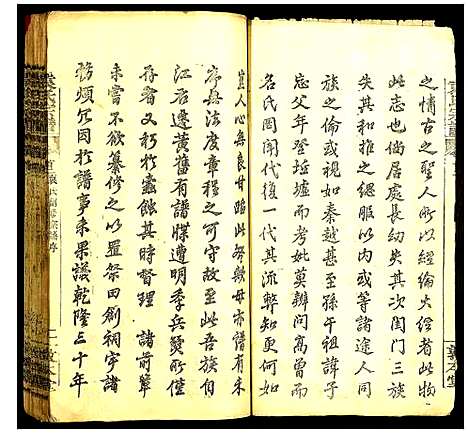 之情古之聖人所以經綸大經者此物
此志也倘居處長幼失其次閨門三族
失其和雅之總服以內或等諸途人同
族之倫或視如秦越甚至孫午祖諱子
忘父年登墟墓而考妣莫辨問高曾而
名氏罔聞代復一代其流弊知更何如
豈人心無良甘蹈此咎與毋亦譜有未
局法度章程之可守故至此吾族自
江右遷黃舊有譜牒遭明季兵燹所僅
存者又移朽於蠹蝕其時督理 諸前輩
未嘗不欲纂修之以置祭田創祠宇諸
務煩冗因於譜事未果議乾隆三十年
敦本堂
敦本堂